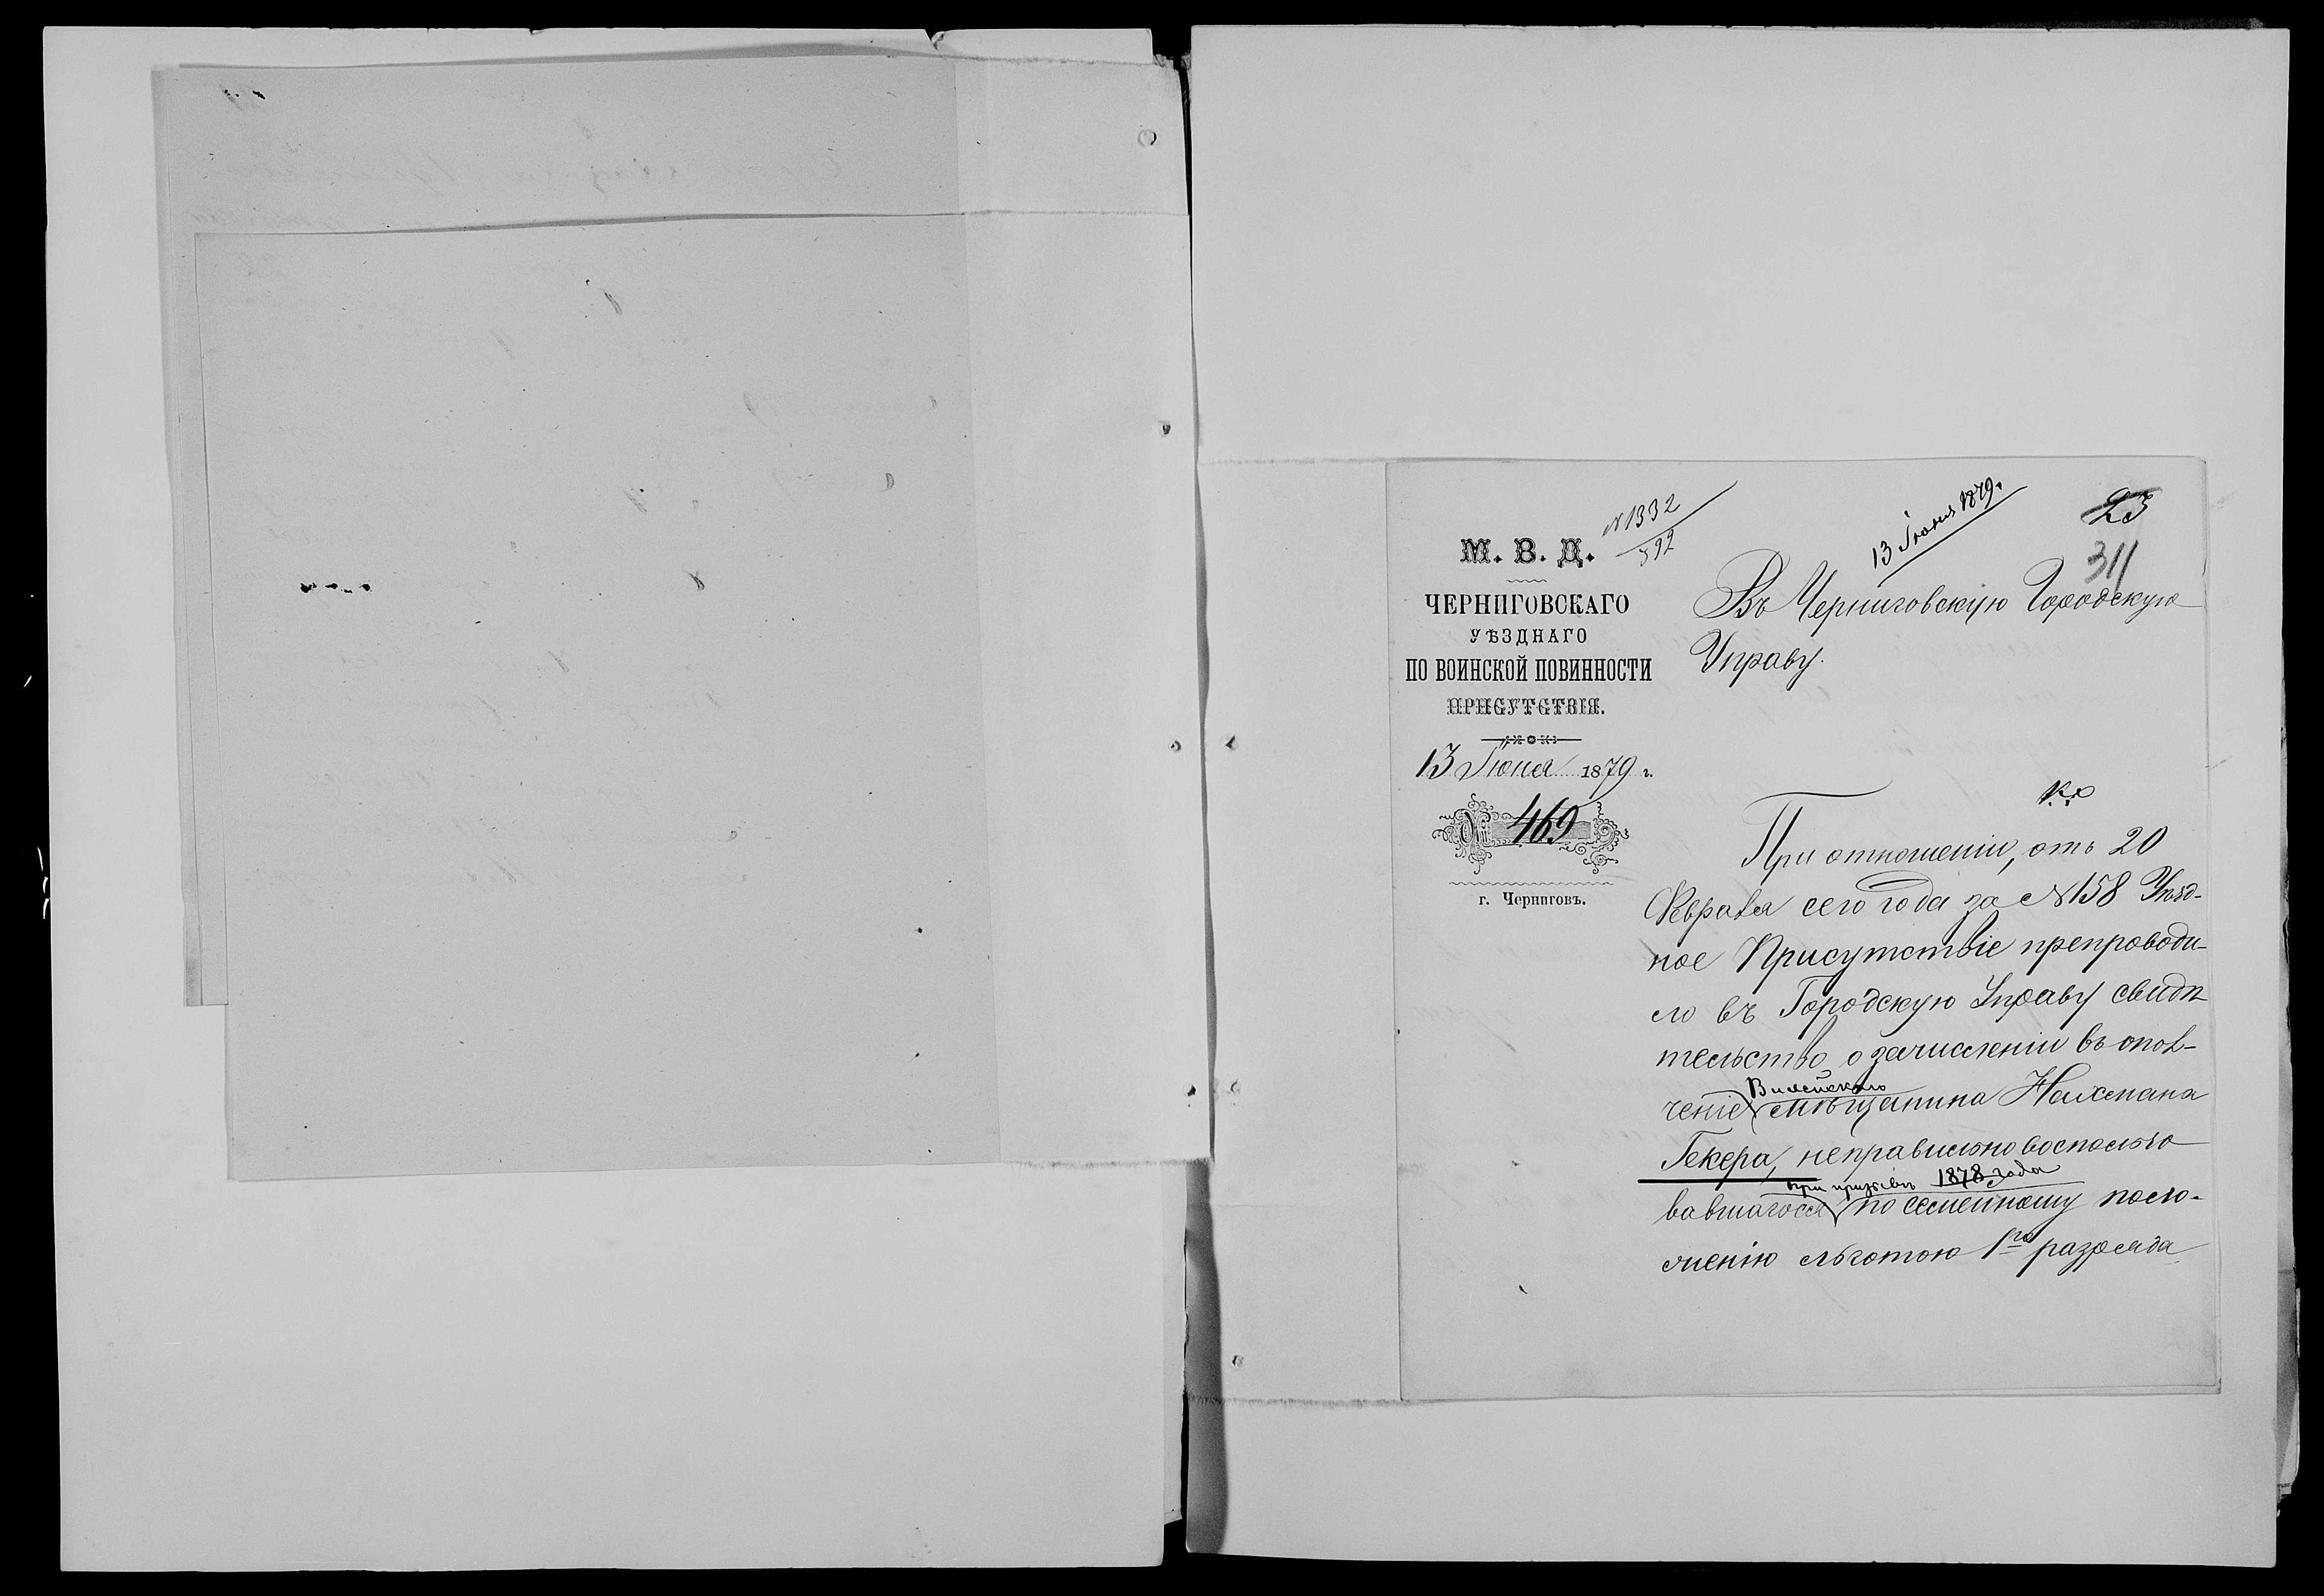 № 1332
592
13 Іюня 1879.
23
311
М. В. Д.
ЧЕРНИГОВСКАГО
УѢЗДНАГО
ПО ВОИНСКОЙ ПОВИННОСТИ
ПРИСУТСТВІЯ.
13 Іюня 1879 г.
№ 469
г. Черниговъ.
Въ Черниговскую Городскую
Управу.
При отношеніи, отъ 20
Февраля сего года за № 158 Уѣзд-
ное Присутствіе препроводи-
ло въ Городскую Управу свидѣ
тельство о зачисленіи въ опол-
Вилейскаго
ченіе мѣщанина Нахмана
Гекера, неправильно воспользо
при призывѣ 1878 года
вавшагося по семейному поло-
женію льготою 1го разряда